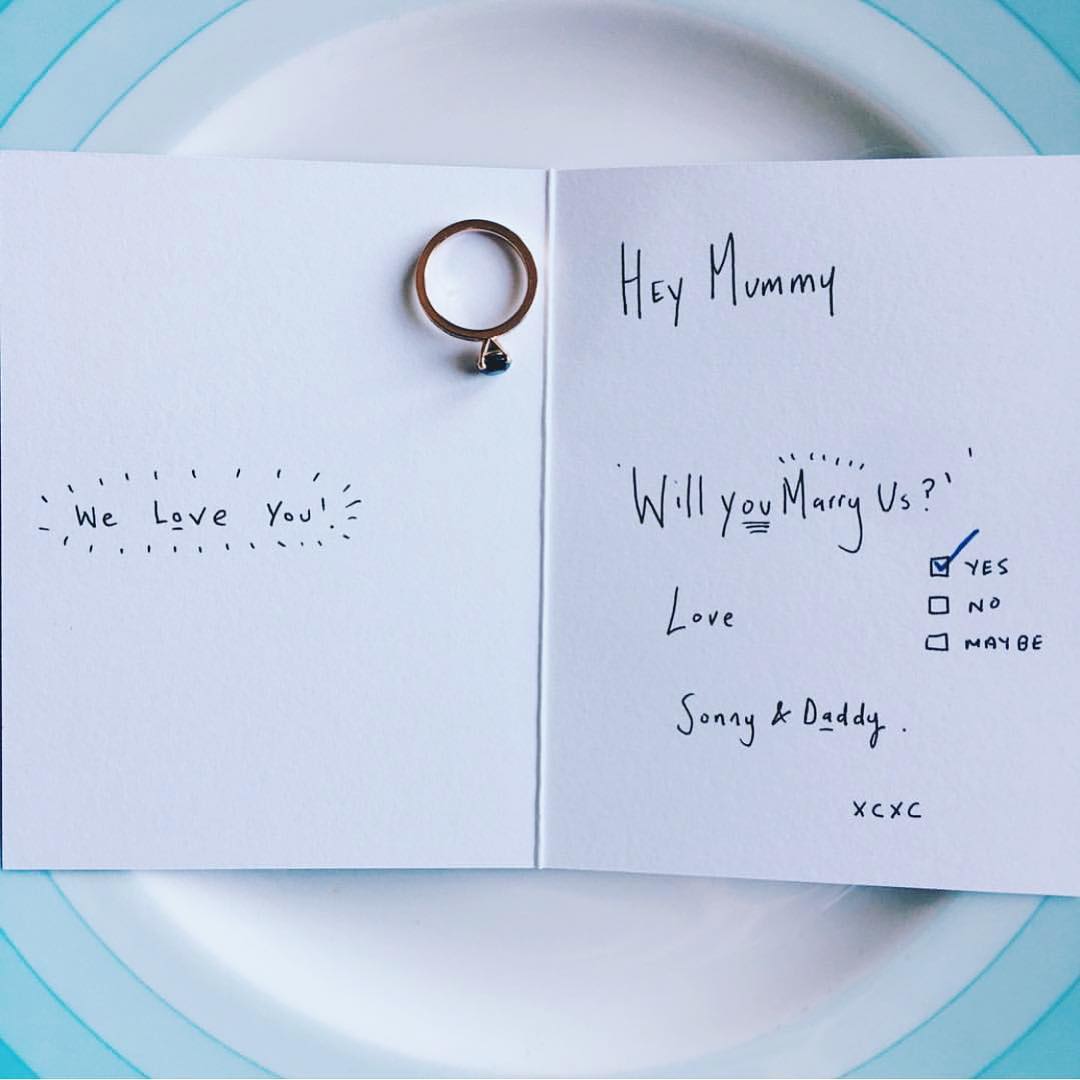 We Love You!
Hey Mummy
'Will you Marry Us?'
YES
NO
MAYBE
Love
Sonny & Daddy.
xcxc